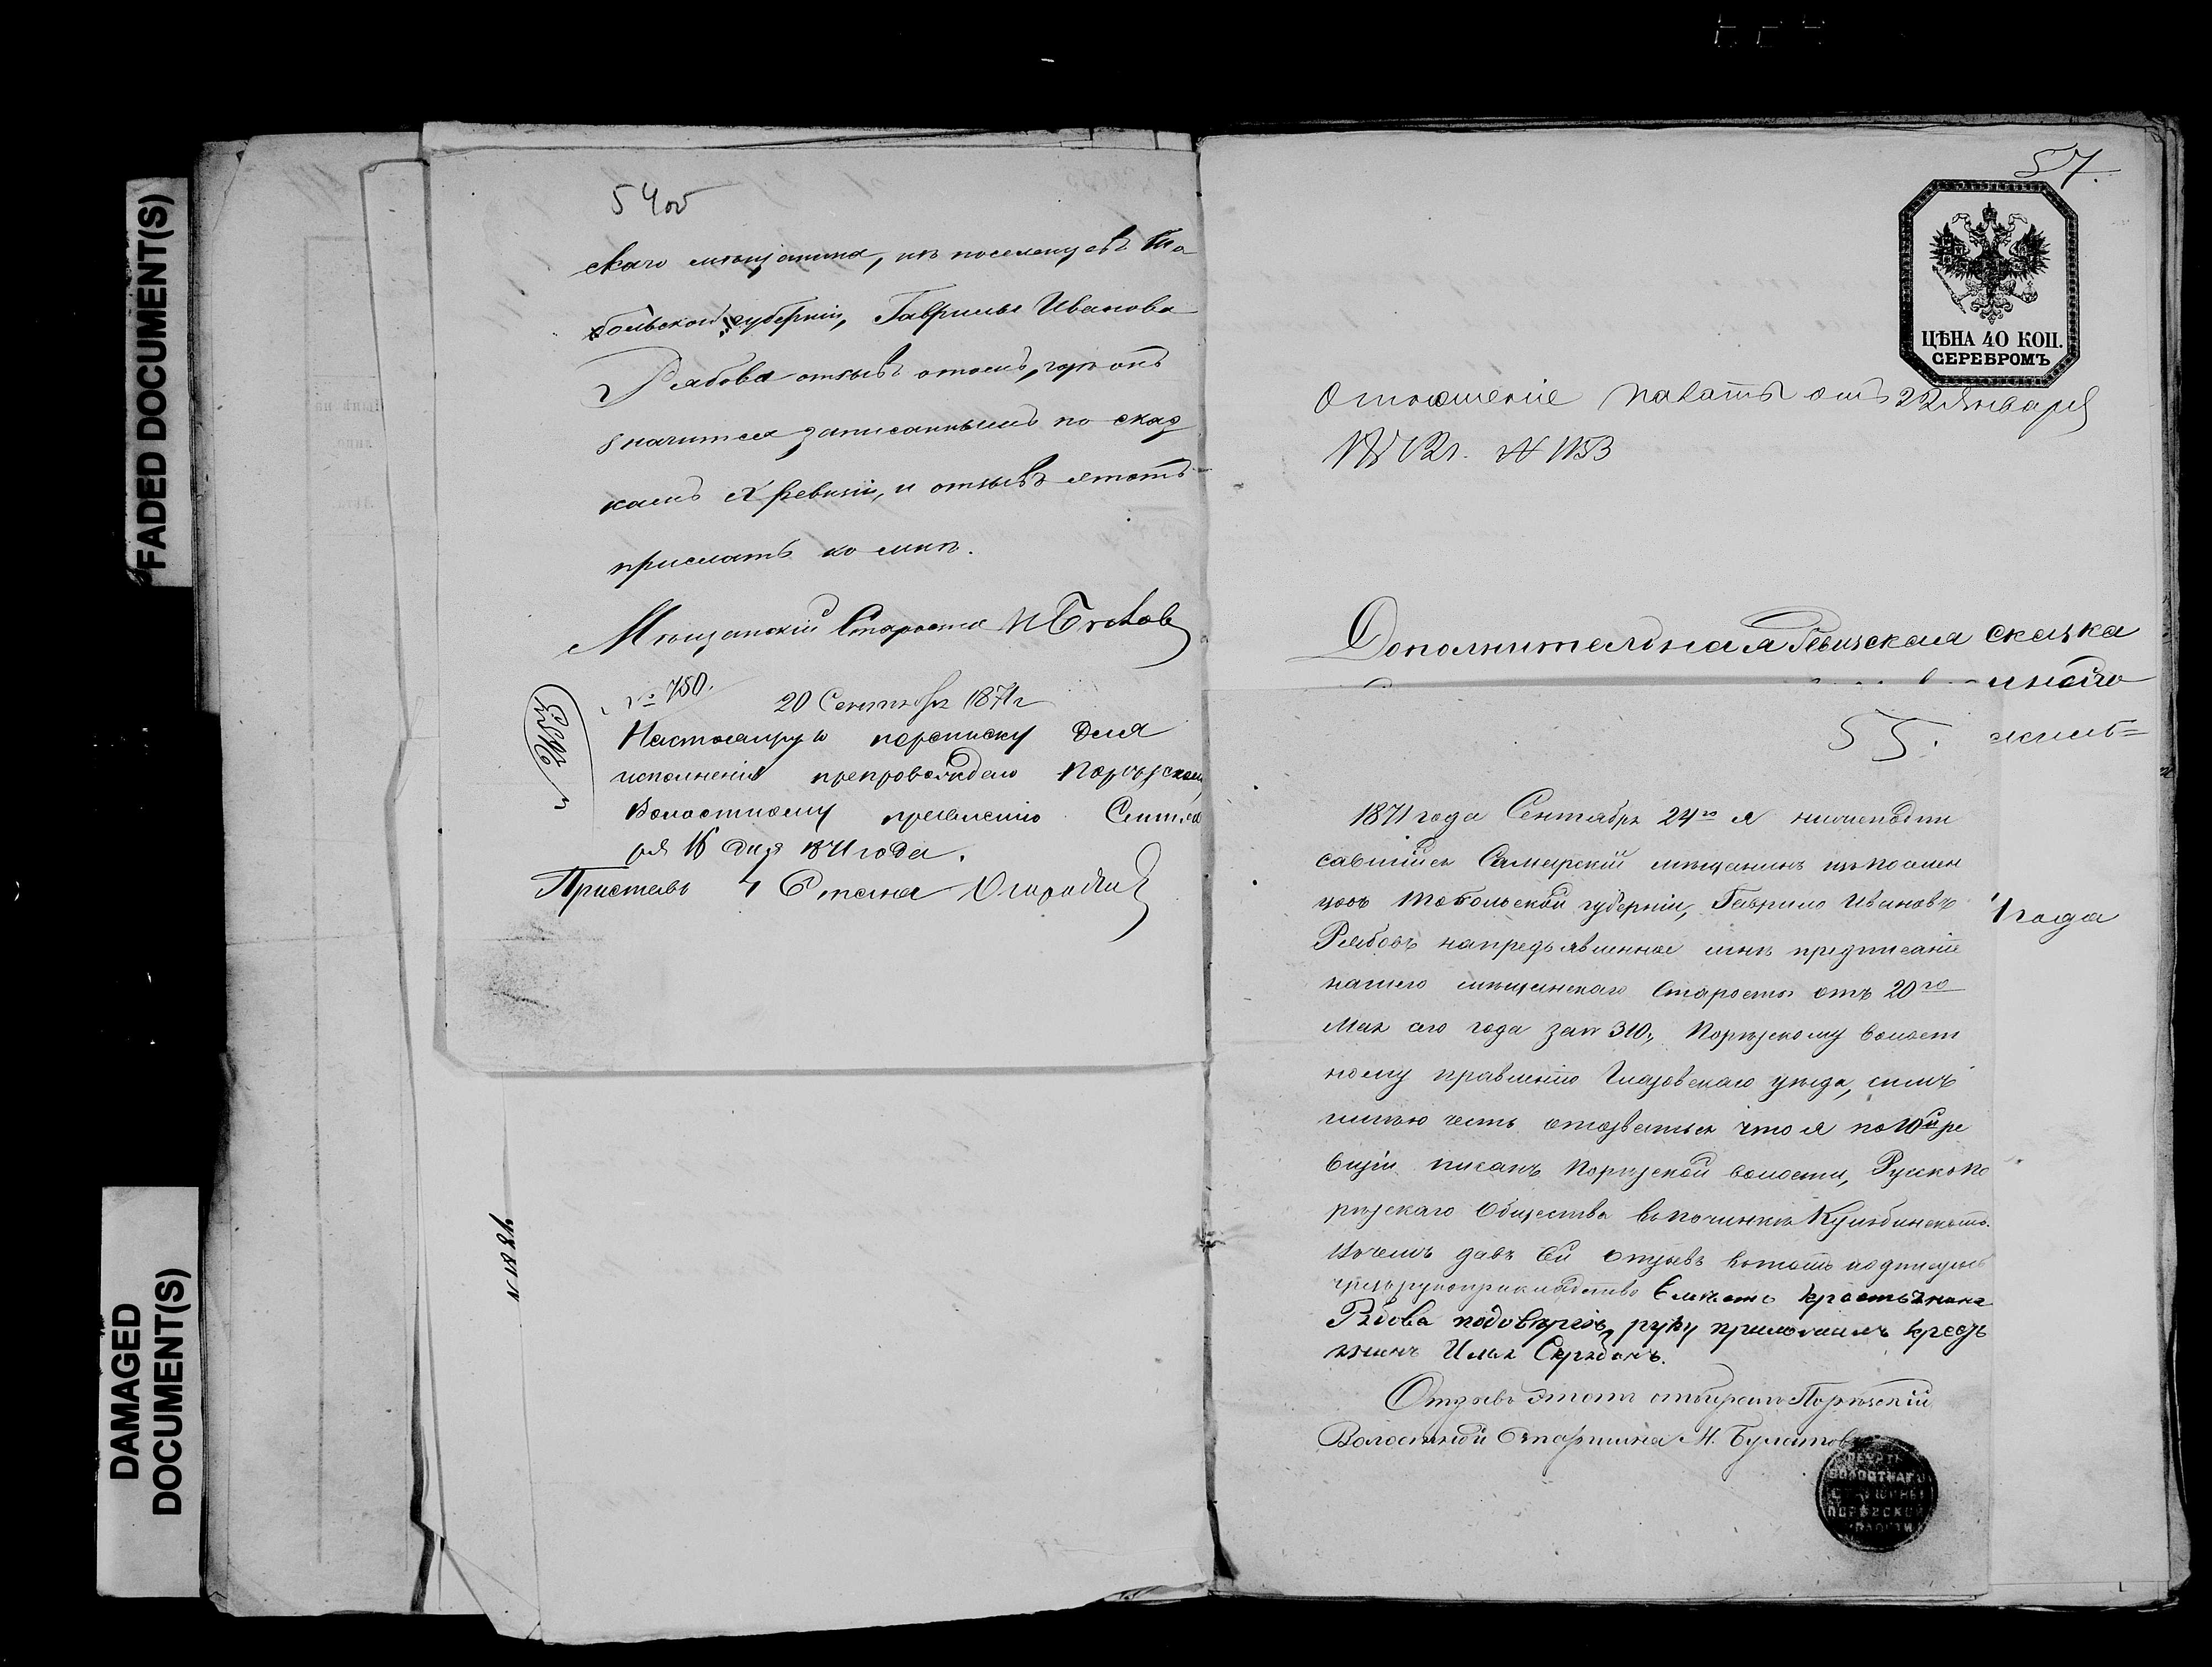 FADED DOCUMENT(S)
DAMAGED
DOCUMENT(S)
54 об
скаго мѣщанина, изъ поселенцевъ То
больской губерніи, Гаврилы Иванова
Рябова отзывъ о томъ, гдѣ онъ
значится записаннымъ по сказ
камъ X ревизіи, и отзывъ этотъ
прислать ко мнѣ.
Мѣщанскій Староста
№ 750.
20 Сентября 1871 г
Настоящую переписку для
исполненія препровождаю Порѣзскому
Волостному правленію Сентяб
ря 16 дня 1871 года.
Приставъ 4 Стана
57.
ЦѢНА 40 КОП.
СЕРЕБРОМЪ
Отношеніе палаты отъ 22 Января
1872 г. № 1153
Дополнительная Ревизская сказка
55.
1 года
1871 года Сентября 24го я нижеподпи
савшійся Самарскій мѣщанинъ изъ поселен
цовъ Тобольской губерніи, Гаврило Ивановъ
Рябовъ на предъявленное мнѣ предписаніе
нашего мѣщанскаго Старосты отъ 20го
Мая сего года за № 310, Порѣзскому волост
ному правленію Глазовскаго уѣзда, симъ
имѣю честь отозваться что я по 10й ре
визіи писанъ Порѣзской волости, Русско По
рѣзскаго Общества въ починкѣ
въ чемъ давъ сей отзывъ въ томъ подписуюсь
чрезъ рукоприкладство вмѣсто крестьянина
Рябова по довѣрію руку приложилъ кресть
янинъ Илья
Отзывъ этотъ отбиралъ Порѣзскій
Волостной Старшина М. Булатовъ
ПЕЧАТЬ
ВОЛОСТНАГО
СТАРШИНЫ
ПОРѢЗСКОЙ
ВОЛОСТИ